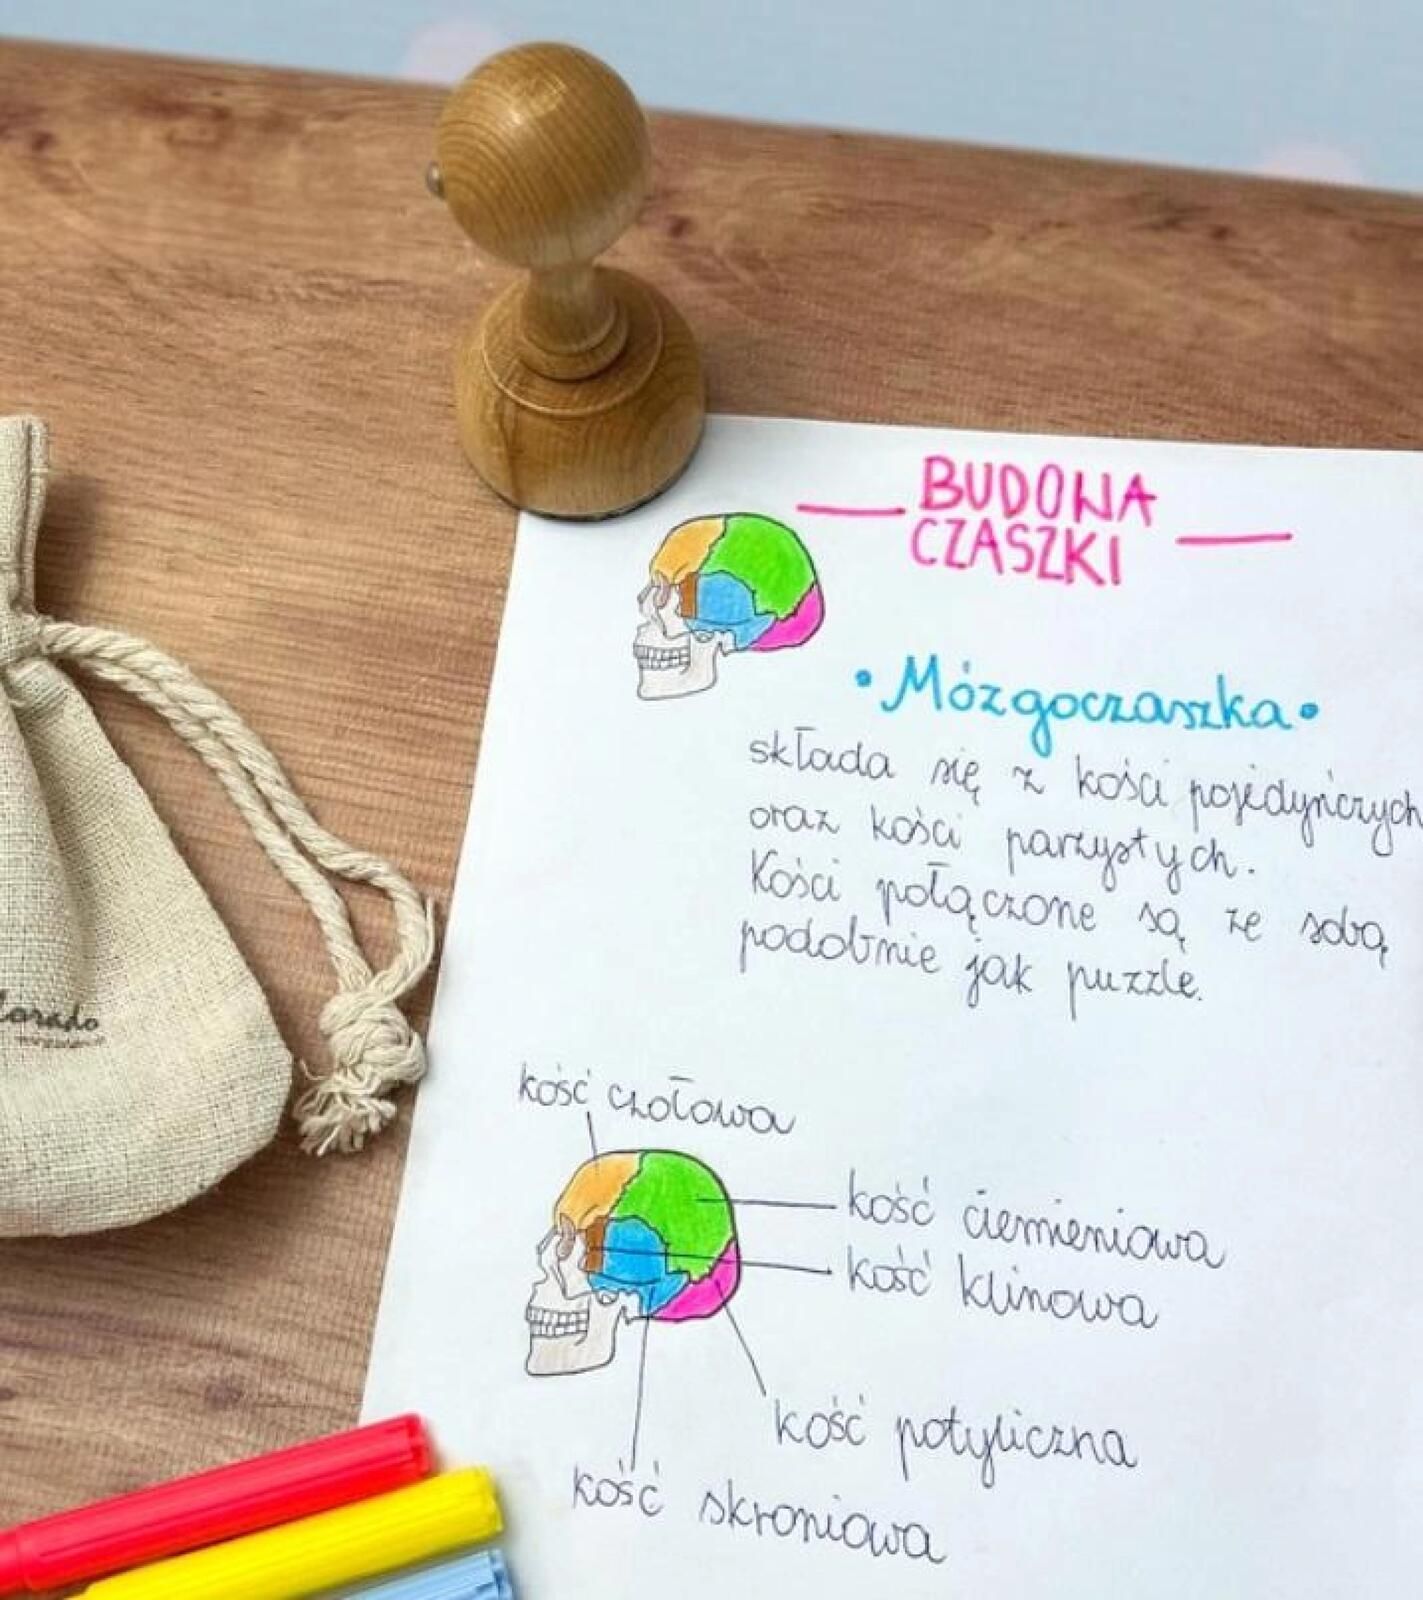 BUDOWA
CZASZKI
• Mózgoczaszka •
składa się z kości pojedyńczych
oraz kości parzystych.
Kości połączone są ze sobą
podobnie jak puzzle.
kość czołowa
kość ciemieniowa
kość klinowa
kość potyliczna
kość skroniowa
lorado